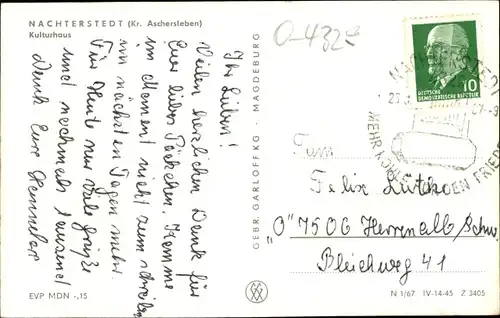 NACHTERSTEDT (Kr. Aschersleben)
Kulturhaus
Ihr Lieben!
Vielen herzlichen Dank für
Euer liebes Päckchen. Komme
im Moment nicht zum schreiben
in nächsten Tagen mehr
Für Heute nur viele Grüße
und nochmals tausend
Dank Eure Hannelore
EVP MDN -,15
GEBR. GARLOFF KG · MAGDEBURG
O-432
DEUTSCHE
DEMOKRATISCHE REPUBLIK
10
NACHTERSTEDT
MEHR KOHLE DEN FRIEDEN
Fam.
Felix Lützkow
"O" 7506 Herrenalb/Schw.
Bleichweg 41
N 1/67 IV-14-45 Z 3405